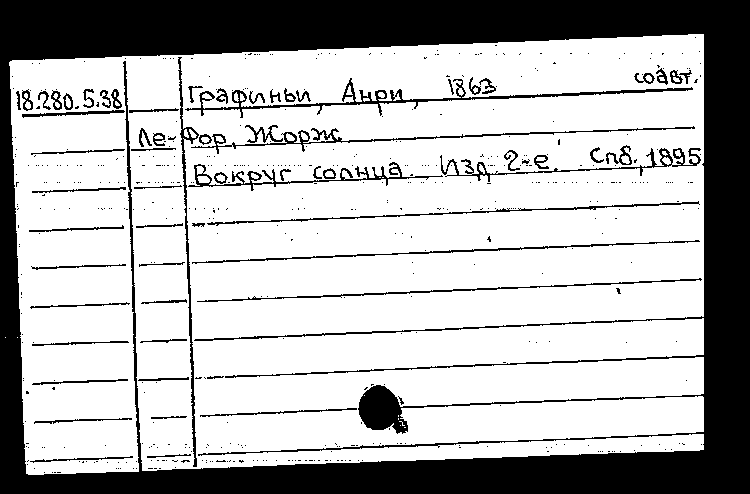 18.280.5.38 Графиньи, Анри, 1863 соавт.
Ле-Фор, Жорж
Вокруг солнца. Изд. 2-е. Спб., 1895.